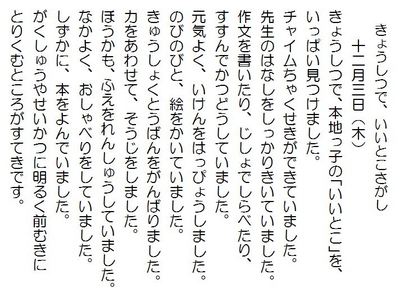 きょうしつで、いいとこさがし
十二月三日（木）
きょうしつで、本地っ子の「いいとこ」を、
いっぱい見つけました。
チャイムちゃくせきができていました。
先生のはなしをしっかりきいていました。
作文を書いたり、じしょでしらべたり、
すすんでかつどうしていました。
元気よく、いけんをはっぴょうしました。
のびのびと、絵をかいていました。
きゅうしょくとうばんをがんばりました。
力をあわせて、そうじをしました。
ほうかも、ふえをれんしゅうしていました。
なかよく、おしゃべりをしていました。
しずかに、本をよんでいました。
がくしゅうやせいかつに明るく前むきに
とりくむところがすてきです。